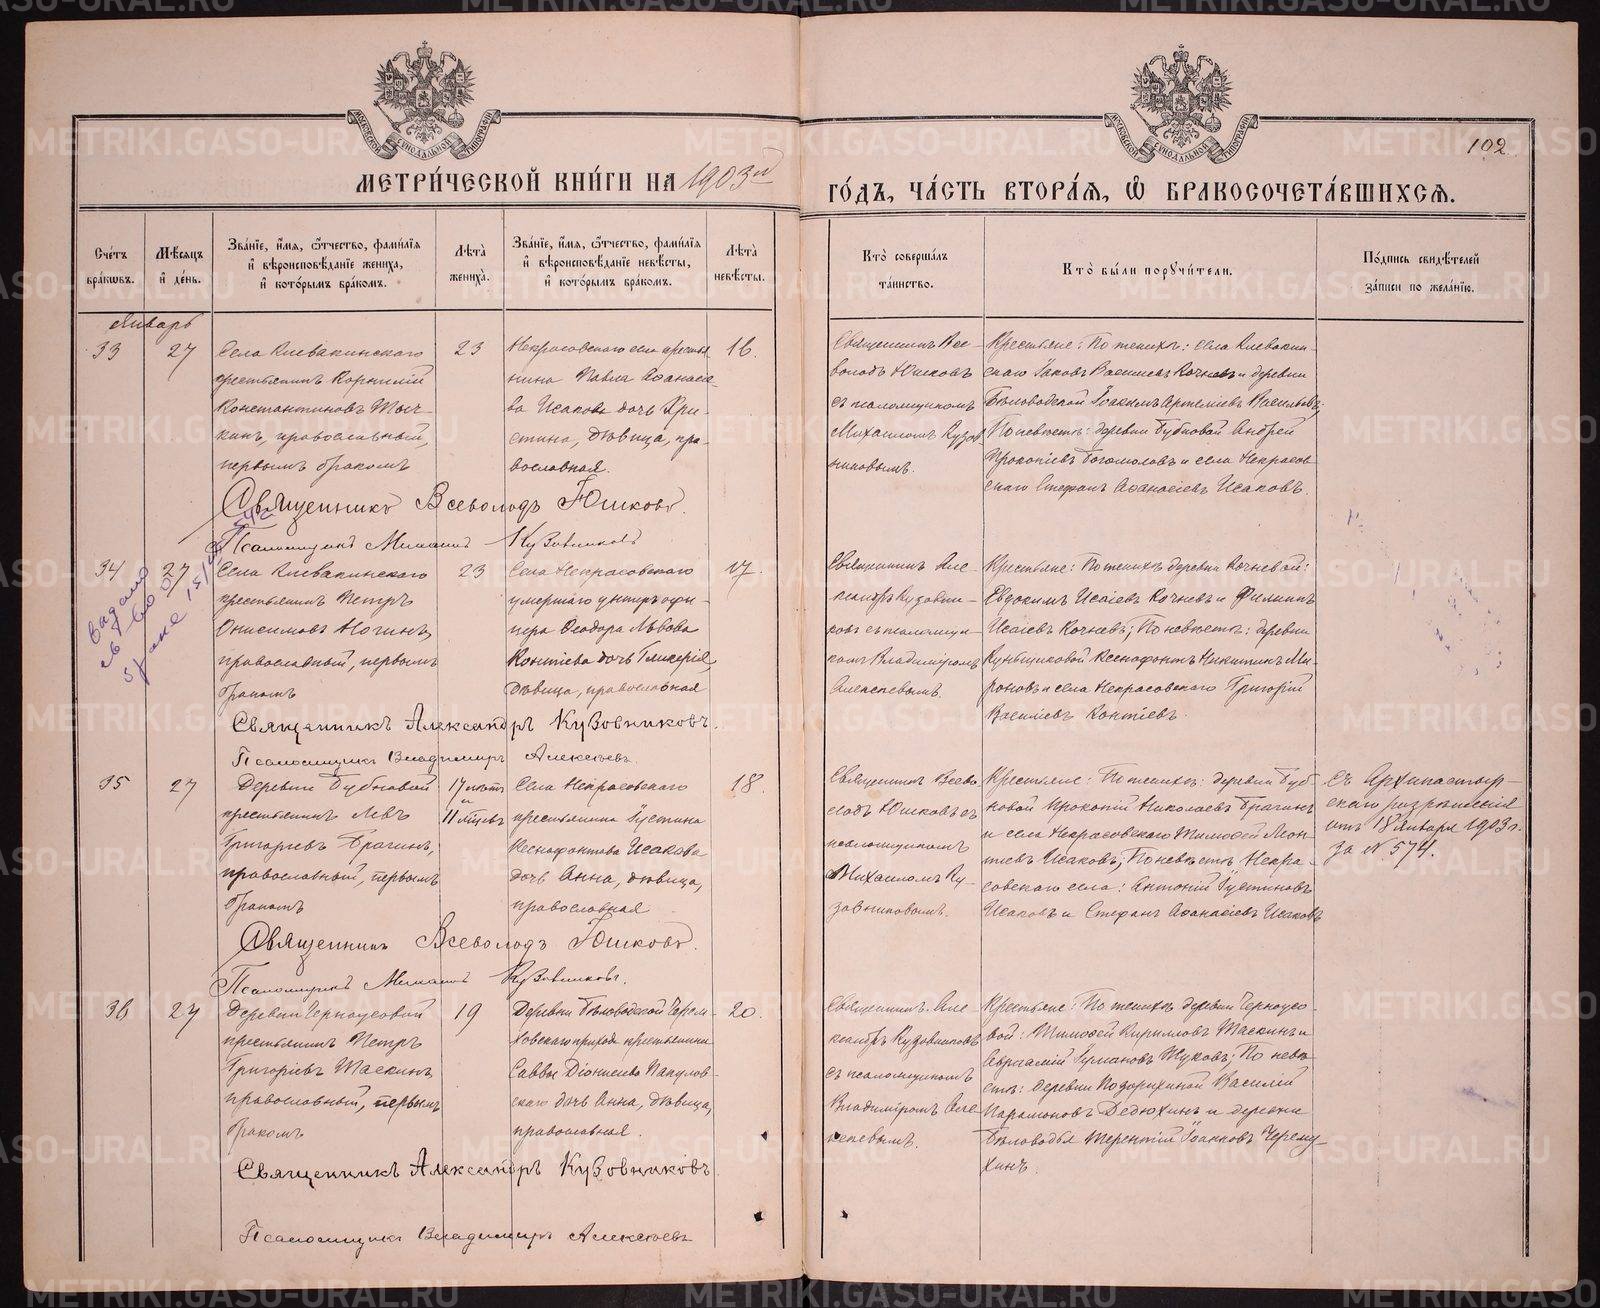 МЕТРИ́ЧЕСКОЙ КНИ́ГИ НА 1903й
ГО́ДЪ, ЧА́СТЬ ВТОРА́Ѧ, Ѽ БРАКОСОЧЕТА́ВШИХСѦ.
102
Сче́тъ бра́кѡвъ.
Мѣ́сѧцъ и де́нь.
Зва́нїе, и́мѧ, ѻ́тчество, фами́лїѧ
и вѣроисповѣ́данїе жениха̀,
и кото́рымъ бра́комъ.
Лѣ́та жениха̀.
Зва́нїе, и́мѧ, ѻ́тчество, фами́лїѧ
и вѣроисповѣ́данїе невѣ́сты,
и кото́рымъ бра́комъ.
Лѣ́та невѣ́сты.
Кто̀ соверша́лъ
та́инство.
Кто̀ бы́ли порꙋчи́тели.
По́дпись свидѣ́телей
за́писи по жела́нїю.
Январь
33
27
Села Клевакинскаго
крестьянинъ Корнилій
Константиновъ Тыч-
кинъ, православный,
первымъ бракомъ
23
Некрасовскаго села крестья-
нина Павла Аѳанасіе-
ва Исакова дочь Хри-
стина, дѣвица, пра-
вославная.
16.
Священникъ Все-
володъ Юшковъ
съ псаломщикомъ
Михаиломъ Кузов-
никовымъ.
Крестьяне: По женихѣ: села Клевакин-
скаго Іаковъ Василіевъ Кочневъ и деревни
Бѣловодской Іоакимъ Артеміевъ
По невѣстѣ: деревни Бубновой Андрей
Прокопіевъ Богомоловъ и села Некрасов-
скаго Стефанъ Аѳанасіевъ Исаковъ.
Священникъ Всеволодъ Юшковъ.
Псаломщикъ Михаилъ Кузовниковъ
34
27
Села Клевакинскаго
крестьянинъ Петръ
Онисимовъ Ногинъ,
православный, первымъ
бракомъ
23
Села Некрасовскаго
умершаго унтеръ офи-
цера Ѳеодора Львова
Контіева дочь Гликерія,
дѣвица, православная
17.
Священникъ Але-
ксандръ Кузовни-
ковъ съ псаломщи-
комъ Владиміромъ
Алексѣевымъ.
Крестьяне: По женихѣ деревни Кочневой:
Евдокимъ Исаіевъ Кочневъ и Филиппъ
Исаіевъ Кочневъ; По невѣстѣ: деревни
Куньщиковой Ксенофонтъ Никитинъ Ми-
роновъ и села Некрасовскаго Григорій
Василіевъ Контіевъ.
Выдано
св-во о
браке
Священникъ Александръ Кузовниковъ.
Псаломщикъ Владимиръ Алексѣевъ.
35
27
Деревни Бубновой
крестьянинъ Левъ
Григорьевъ Брагинъ,
православный, первымъ
бракомъ
17 лѣтъ
и
11 мѣсяцевъ
Села Некрасовскаго
крестьянина Іустина
Ксенофонтова Исакова
дочь Анна, дѣвица,
православная
18.
Священникъ Всево-
лодъ Юшковъ съ
псаломщикомъ
Михаиломъ Ку-
зовниковымъ.
Крестьяне: По женихѣ: деревни Буб-
новой Прокопій Николаевъ Брагинъ
и села Некрасовскаго Тимоѳей Леон-
тіевъ Исаковъ; По невѣстѣ Некра-
совскаго села: Антоній Іустиновъ
Исаковъ и Стефанъ Аѳанасіевъ Исаковъ
Съ Архипастыр-
скаго разрѣшенія
отъ 18 Января 1903 г.
за № 574.
Священникъ Всеволодъ Юшковъ.
Псаломщикъ Михаилъ Кузовниковъ.
36
27
Деревни Черноусовой
крестьянинъ Петръ
Григоріевъ Таскинъ,
православный, первымъ
бракомъ
19
Деревни Бѣловодской Черем-
ховскаго прихода крестьянина
Саввы Діонисіева Пакулов-
скаго дочь Анна, дѣвица,
православная.
20.
Священникъ Але-
ксандръ Кузовниковъ
съ псаломщикомъ
Владиміромъ Але-
ксѣевымъ.
Крестьяне: По женихѣ деревни Черноусо-
вой: Тимоѳей Кирилловъ Таскинъ и
Жуковъ; По невѣ-
стѣ: деревни Подорихиной Василій
Парамоновъ Дедюхинъ и деревни
Бѣловодья Терентій Іоанновъ Черему-
хинъ.
Священникъ Александръ Кузовниковъ
Псаломщикъ Владимиръ Алексѣевъ
METRIKI.GASO-URAL.RU